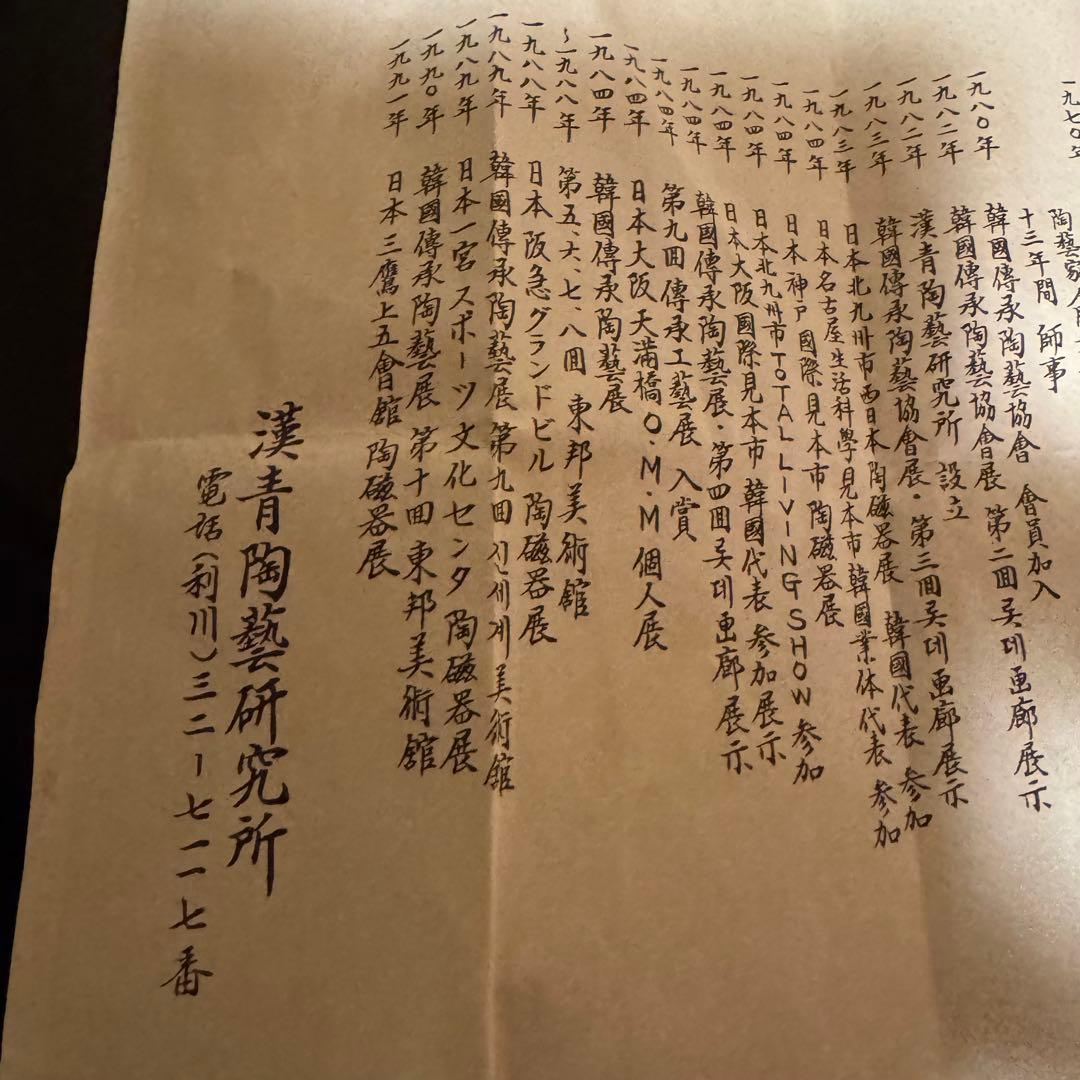 一九七〇年 陶藝家
十三年間 師事
一九八〇年 韓國傳承陶藝協會 會員加入
一九八二年 韓國傳承陶藝協會展 第二回 롯데画廊展示
一九八二年 漢青陶藝研究所 設立
一九八三年 韓國傳承陶藝協會展・第三回롯데画廊展示
一九八三年 日本北九州市西日本陶磁器展 韓國代表 参加
一九八四年 日本名古屋生活科學見本市韓國業体代表 参加
一九八四年 日本神戸國際見本市陶磁器展
一九八四年 日本北九州市TOTAL LIVING SHOW 参加
一九八四年 日本大阪國際見本市 韓國代表 参加展示
一九八四年 韓國傳承陶藝展・第四回롯데画廊展示
一九八四年 第九回傳承工藝展 入賞
一九八四年 日本大阪天満橋O・M・M個人展
一九八四年 韓國傳承陶藝展
〜一九八八年 第五、六、七、八回 東邦美術館
一九八八年 日本阪急グランドビル 陶磁器展
一九八九年 韓國傳承陶藝展 第九回 신세계美術館
一九八九年 日本一宮スポーツ文化センタ陶磁器展
一九九〇年 韓國傳承陶藝展 第十回 東邦美術館
一九九一年 日本三鷹上五會館 陶磁器展
漢青陶藝研究所
電話(利川)三二ー七一一七番